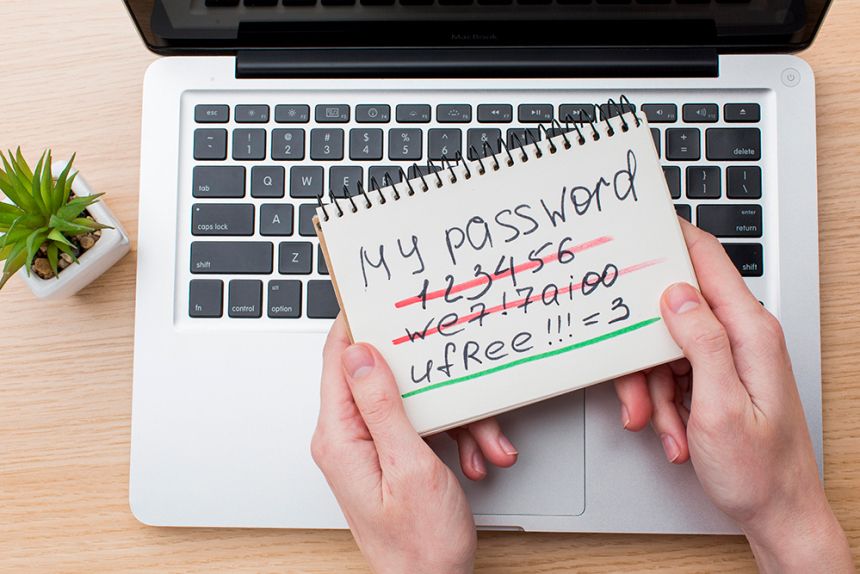 MacBook
esc
~ ! @ # $ % ^ & + = delete
1 2 3 4 5 6
tab Q W E R } ] | \
caps lock A enter return
shift Z shift
fn control option
My password
123456
we7!7aioo
ufRee!!!=3